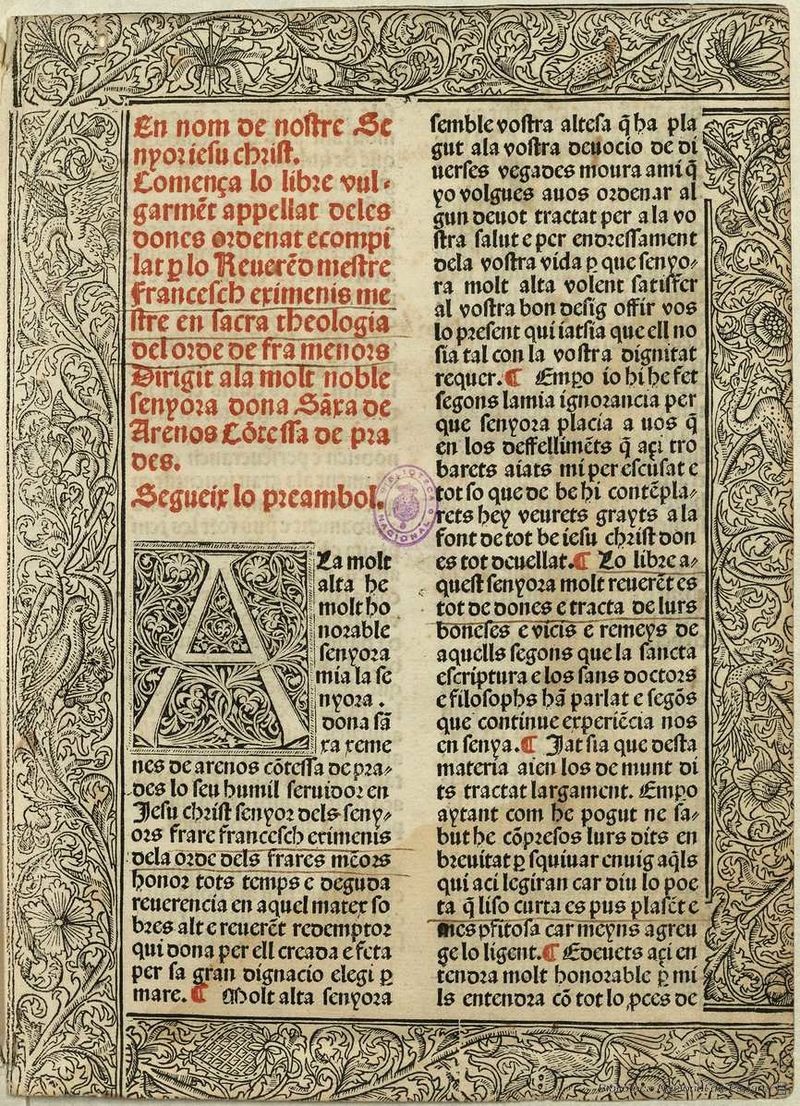 En nom de nostre Se
nyor iesu christ.
Comença lo libre vul-
garmēt appellat deles
dones ordenat ecompi
lat ꝑ lo Reuerēd mestre
francesch eximenis me
stre en sacra theologia
del orde de fra menors
Dirigit ala molt noble
senyora dona Sāxa de
Arenos Cōtessa de pra
des.
Segueix lo preambol.
A La molt
alta he
molt ho
norable
senyora
mia la se
nyora .
dona sā
xa xeme
nes de arenos cōtessa de pra-
des lo seu humil seruidor en
Jesu christ senyor dels seny-
ors frare francesch eximenis
dela orde dels frares mēors
honor tots temps e deguda
reuerencia en aquel matex so
bres alt e reuerēt redemptor
qui dona per ell creada e feta
per sa gran dignacio elegi ꝑ
mare.¶ Molt alta senyora
semble vostra altesa q̄ ha pla
gut ala vostra deuocio de di
uerses vegades moura ami q̄
yo volgues auos ordenar al
gun deuot tractat per a la vo
stra salut e per endressament
dela vostra vida ꝑ que senyo-
ra molt alta volent satisfer
al vostra bon desig offir vos
lo present qui iatsia que ell no
sia tal con la vostra dignitat
requer.¶ Empo io hi he fet
segons la mia ignorancia per
que senyora placia a uos q̄
en los deffellimēts q̄ açi tro
barets aiats mi per escusat e
tot so que de be hi contēpla-
rets hey veurets grayts a la
font de tot be iesu christ don
es tot deuellat.¶ Lo libre a-
quest senyora molt reuerēt es
tot de dones e tracta de lurs
boneses e vicis e remeys de
aquells segons que la sancta
escriptura e los sans doctors
e filosophs hā parlat e segōs
que continue experiēcia nos
en senya.¶ Jat sia que desta
materia aien los de munt di
ts tractat largament. Empo
aytant com he pogut ne sa-
but he cōpresos lurs dits en
breuitat ꝑ squiuar enuig aq̄ls
qui aci legiran car diu lo poe
ta q̄ liso curta es pus plasēt e
mes pfitosa car meyns agreu
ge lo ligent.¶ E deuets açi en
tendra molt honorable ꝑ mi
ls entendra cō tot lo pces de
BIBLIOTECA NACIONAL